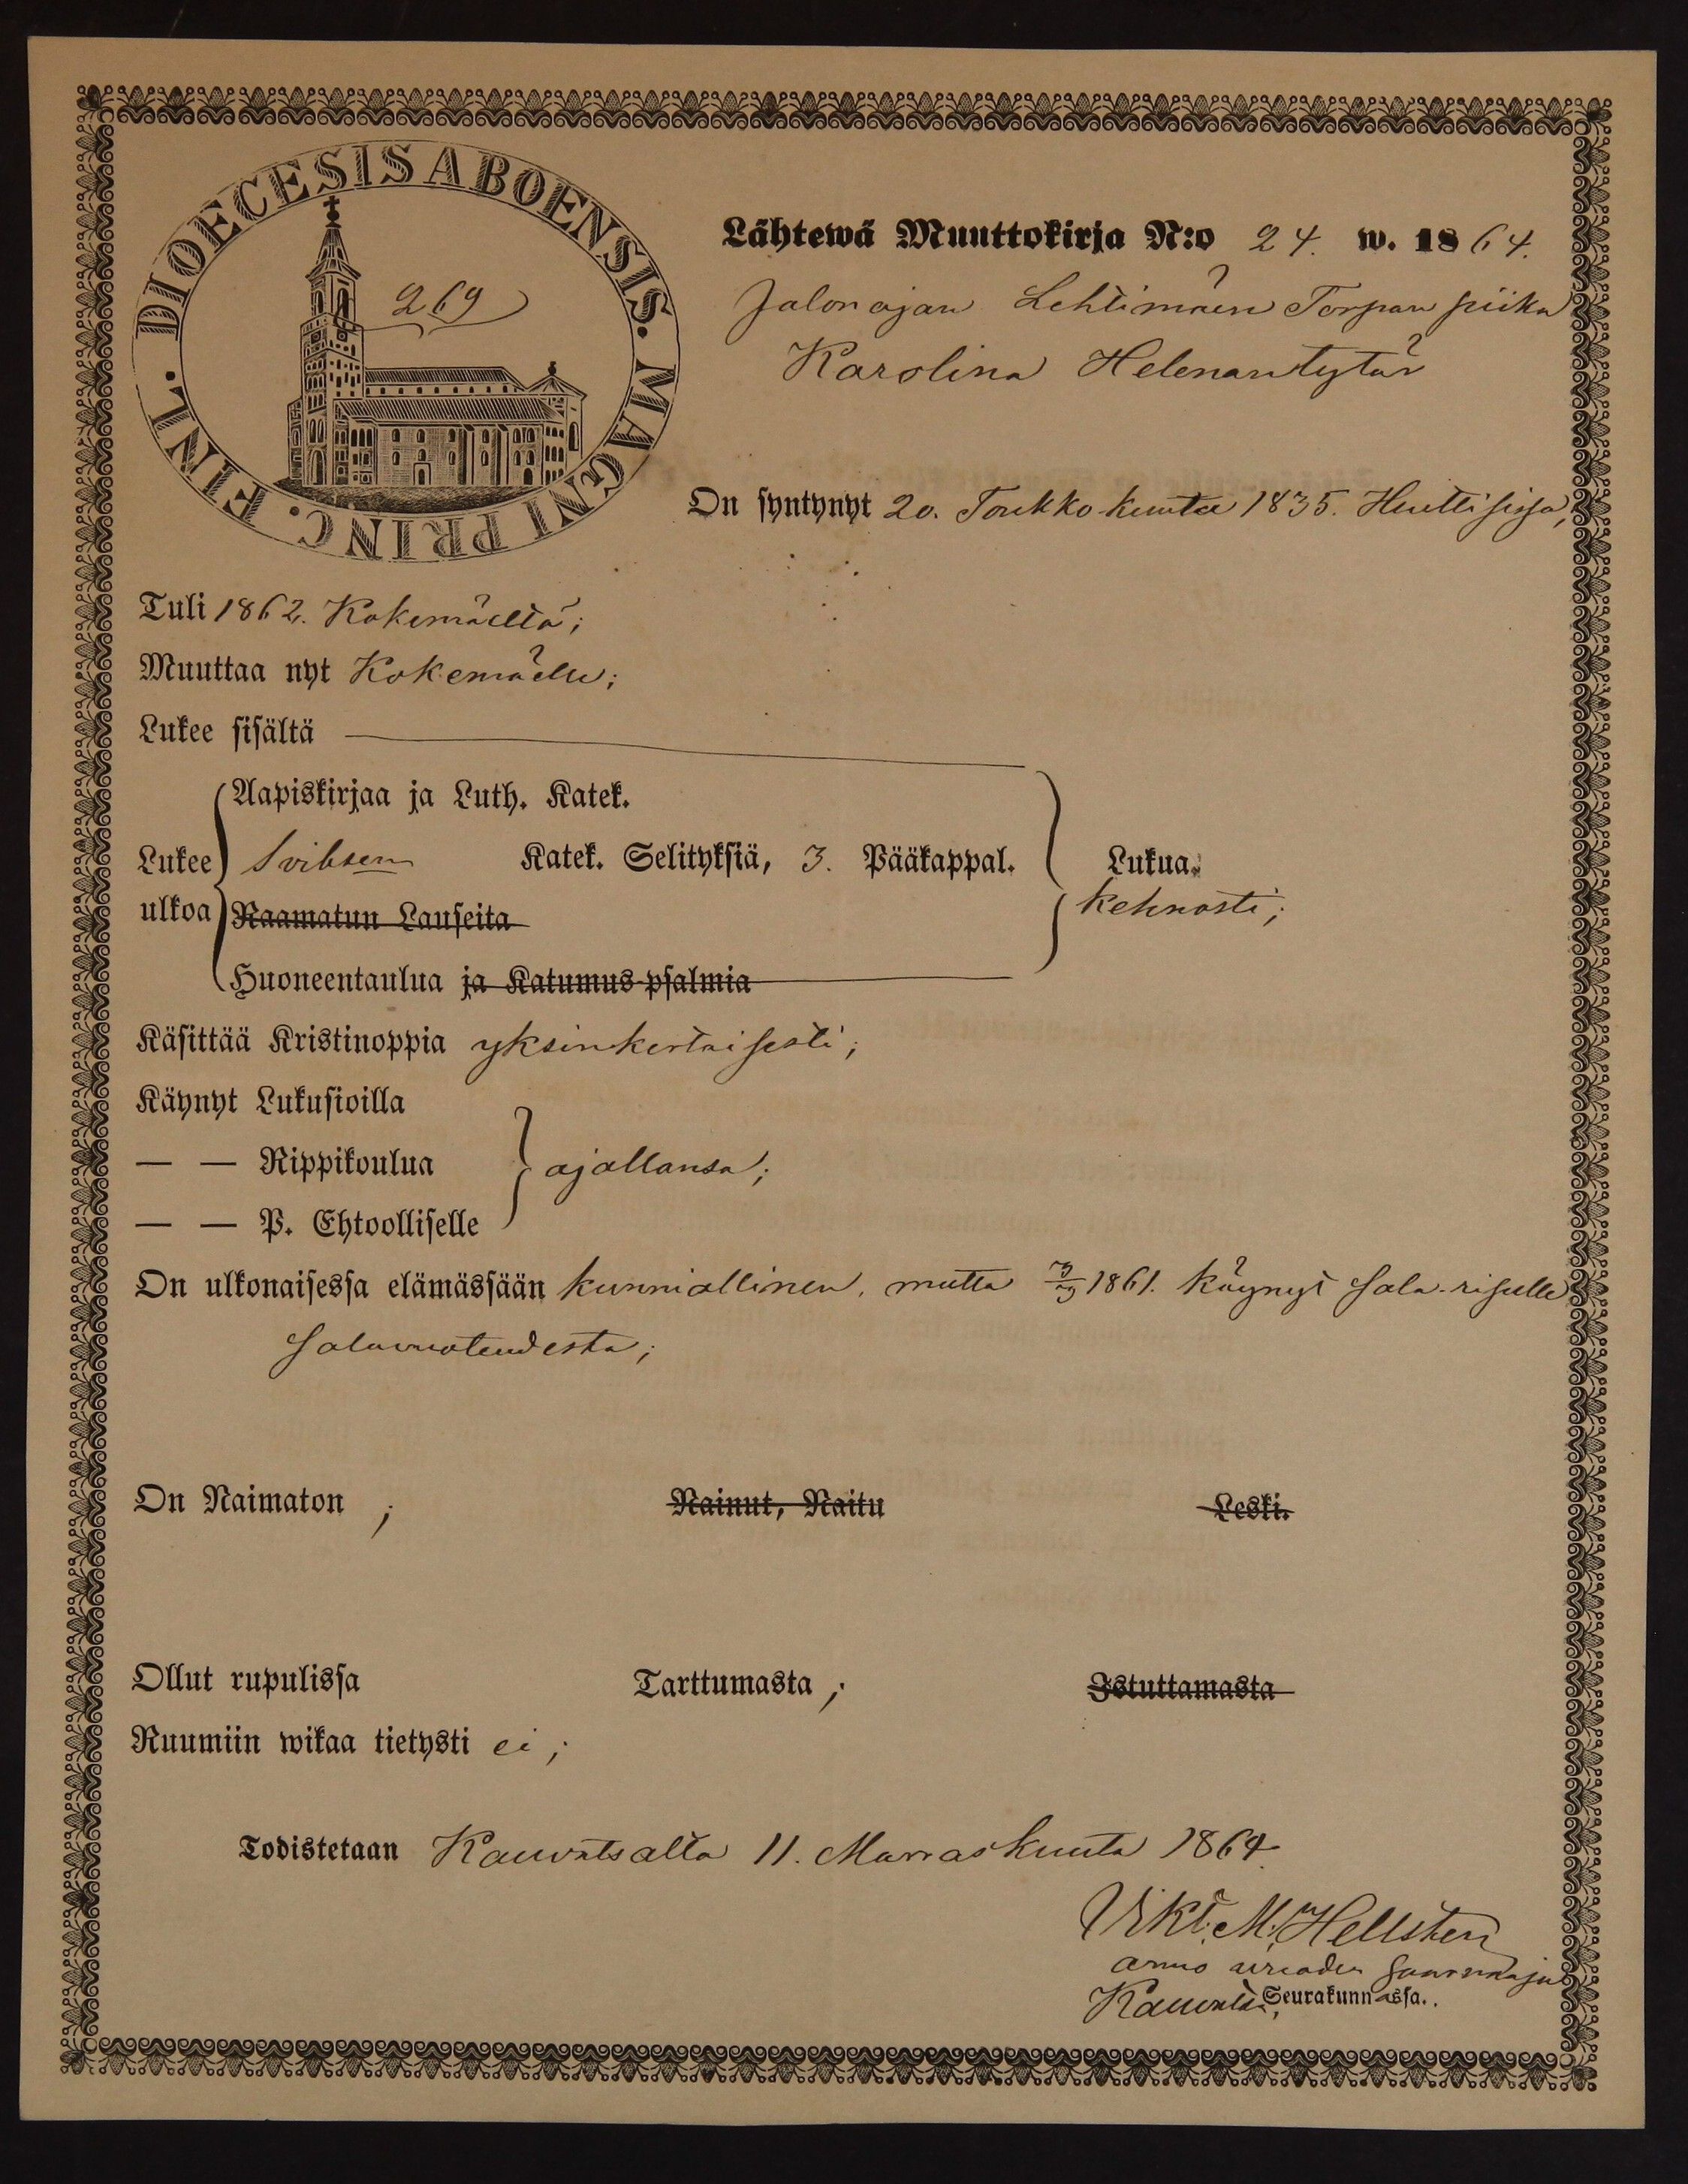 DIOECESIS ABOENSIS. MAGNI PRINC. FINL.
269
Lähtewä Muuttokirja N:o 24. w. 1864.
Jalonojan Lehtimäen Torpan piika
Karolina Helenantytär
On syntynyt 20. Toukkokuuta 1835. Huittisissa,
Tuli 1862. Kokemäeltä;
Muuttaa nyt Kokemäelle;
Lukee sisältä
Aapiskirjaa ja Luth. Katek.
Lukee ulkoa Svibsen Katek. Selityksiä, 3. Pääkappal. Lukua.
Raamatun Lauseita kehnosti;
Huoneentaulua ja Katumus-psalmia
Käsittää Kristinoppia yksinkertaisesti;
Käynyt Lukusioilla
— — Rippikoulua ajallansa;
— — P. Ehtoolliselle
On ulkonaisessa elämässään kunniallinen, mutta 1861. käynyt sala-ripillä
salavuoteudesta;
On Naimaton ; Nainut, Naitu Leski.
Ollut rupulissa Tarttumasta ; Istuttamasta
Ruumiin wikaa tietysti ei ;
Todistetaan Kauvatsalta 11. Marraskuuta 1864.
Vikt. M. Hellsten
armo vuoden Saarnaaja
Kauvatsa, Seurakunnassa.